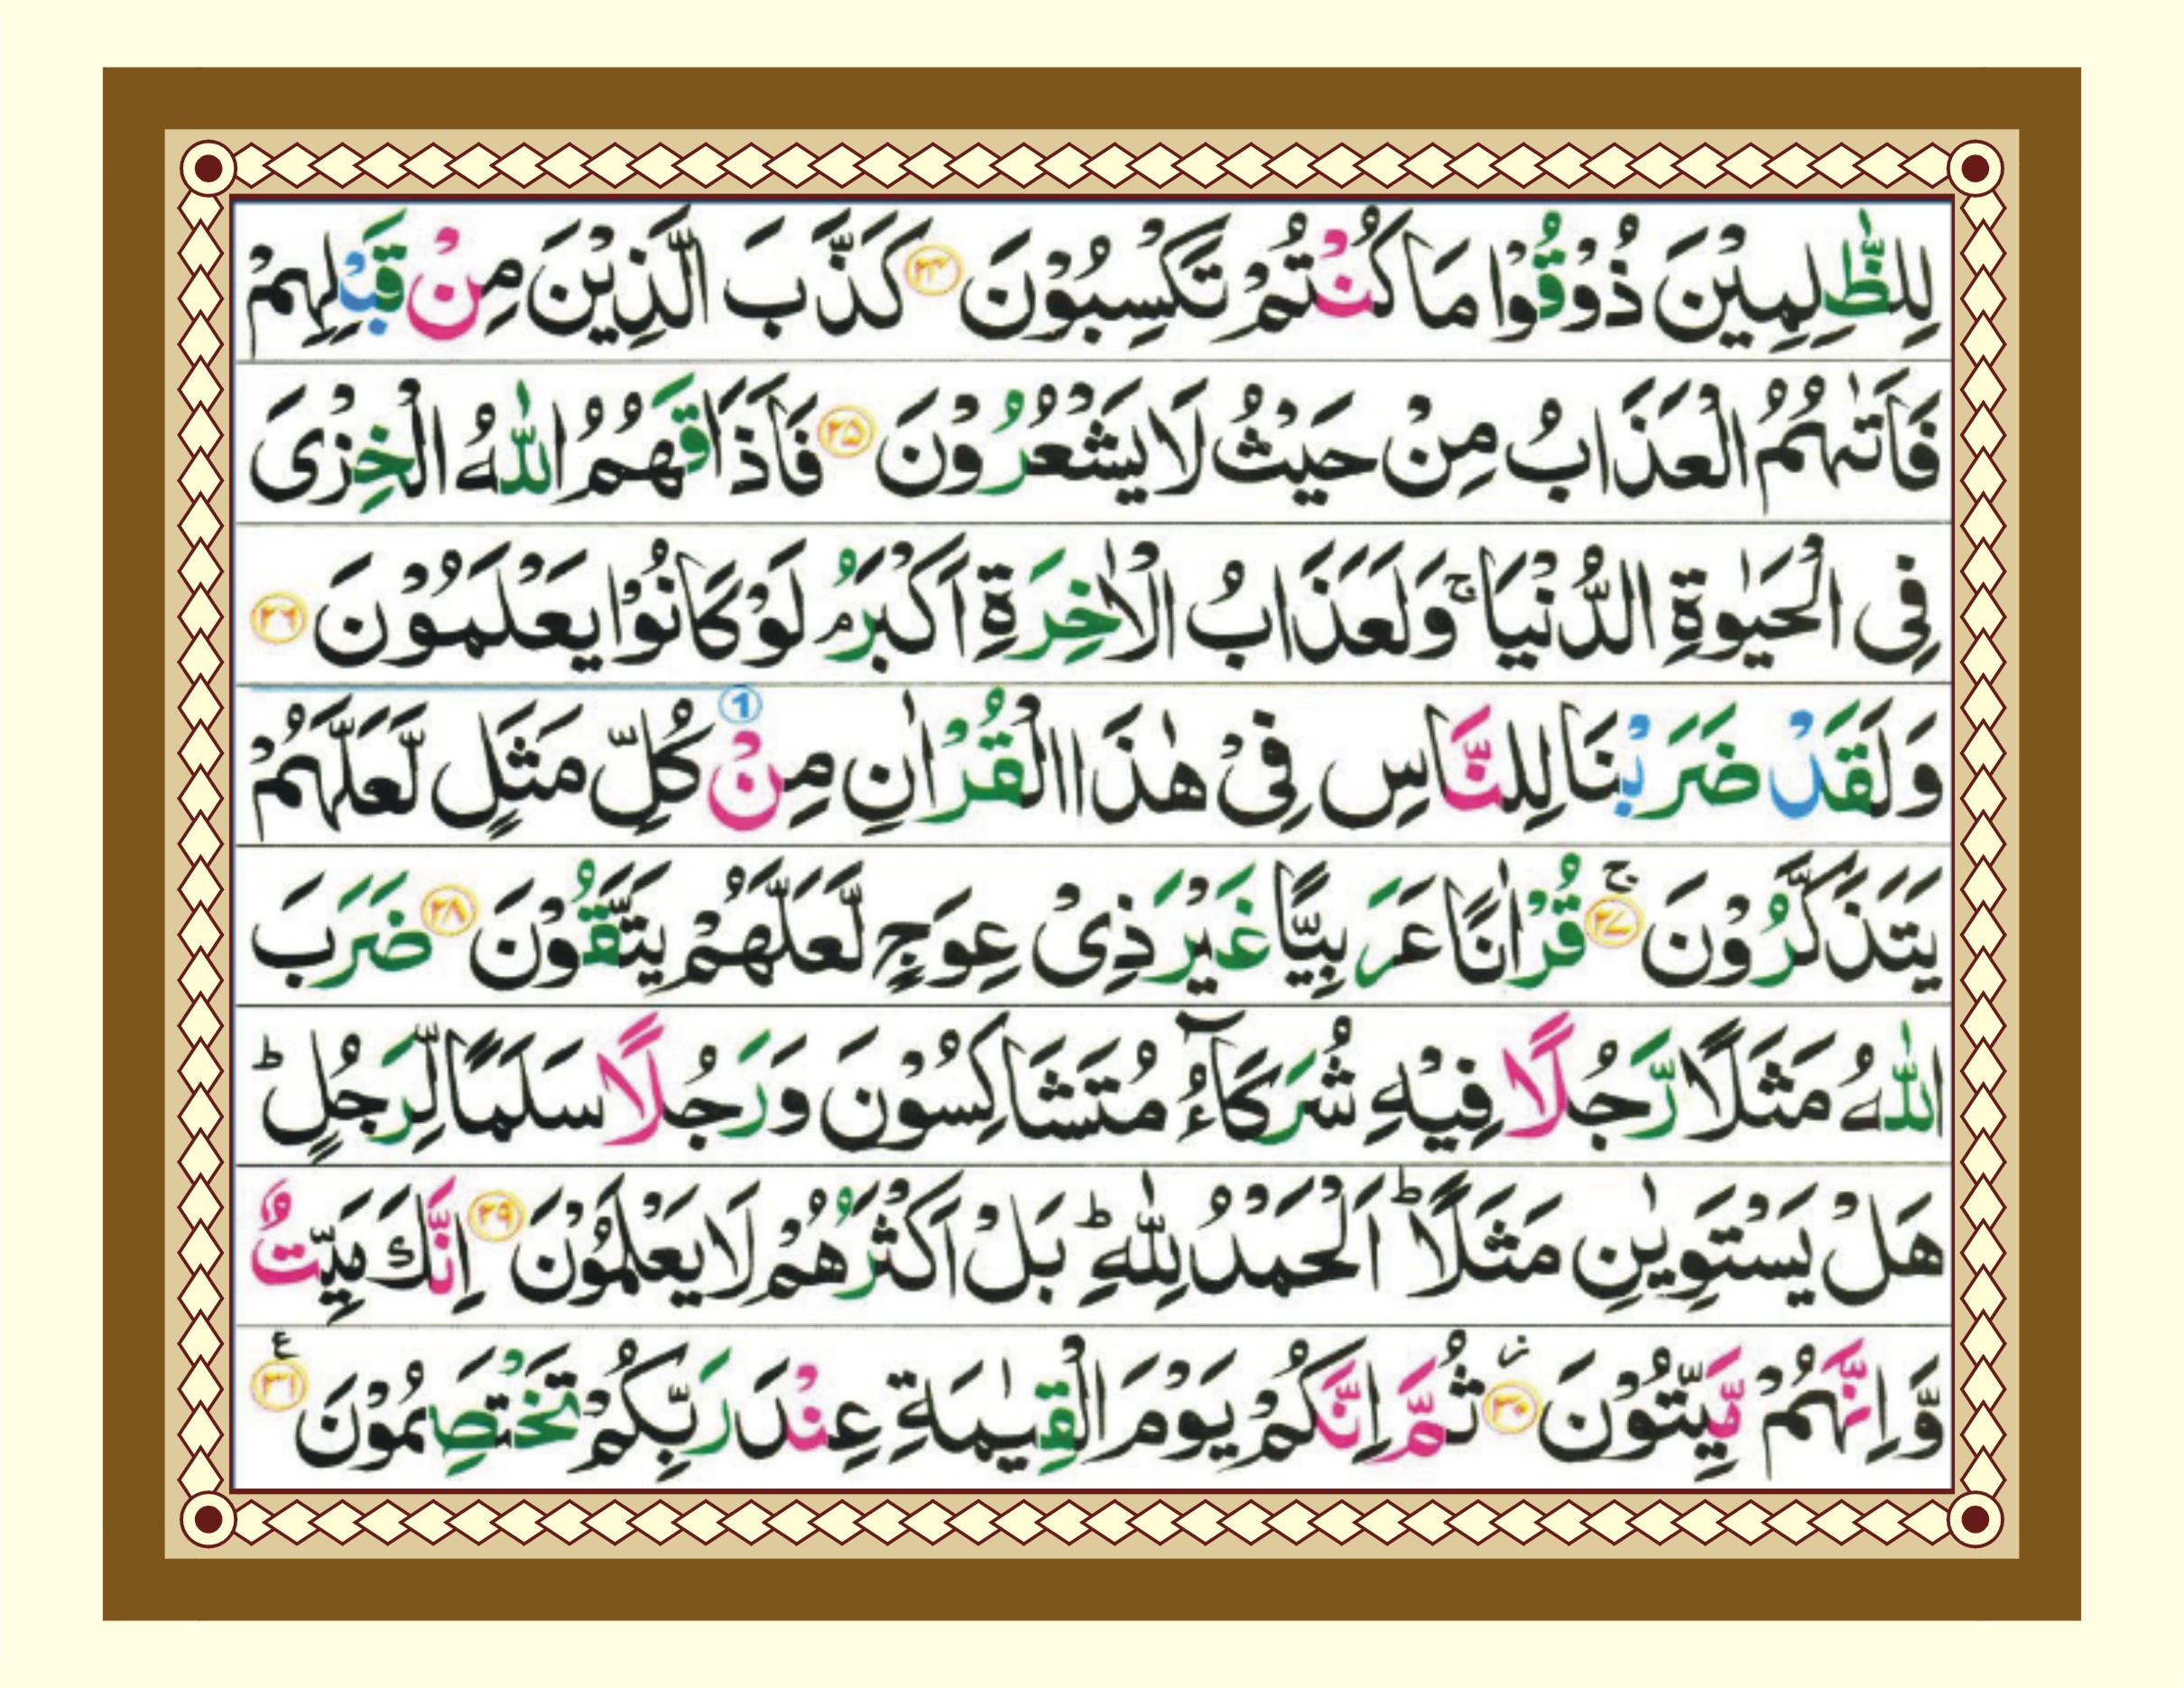 لِلظّٰلِمِيْنَ ذُوْقُوْا مَا كُنْتُمْ تَكْسِبُوْنَ ۲۴ كَذَّبَ الَّذِيْنَ مِنْ قَبْلِهِمْ
فَاَتٰىهُمُ الْعَذَابُ مِنْ حَيْثُ لَا يَشْعُرُوْنَ ۲۵ فَاَذَاقَهُمُ اللّٰهُ الْخِزْىَ
فِى الْحَيٰوةِ الدُّنْيَا ۚ وَلَعَذَابُ الْاٰخِرَةِ اَكْبَرُ ۘ لَوْ كَانُوْا يَعْلَمُوْنَ ۲۶
وَلَقَدْ ضَرَبْنَا لِلنَّاسِ فِىْ هٰذَا الْقُرْاٰنِ مِنْ 1 كُلِّ مَثَلٍ لَّعَلَّهُمْ
يَتَذَكَّرُوْنَ ۲۷ ۚ قُرْاٰنًا عَرَبِيًّا غَيْرَ ذِىْ عِوَجٍ لَّعَلَّهُمْ يَتَّقُوْنَ ۲۸ ضَرَبَ
اللّٰهُ مَثَلًا رَّجُلًا فِيْهِ شُرَكَآءُ مُتَشَاكِسُوْنَ وَرَجُلًا سَلَمًا لِّرَجُلٍ ؕ
هَلْ يَسْتَوِيٰنِ مَثَلًا ؕ اَلْحَمْدُ لِلّٰهِ ؕ بَلْ اَكْثَرُهُمْ لَا يَعْلَمُوْنَ ۲۹ اِنَّكَ مَيِّتٌ
وَّاِنَّهُمْ مَّيِّتُوْنَ ۳۰ ز ثُمَّ اِنَّكُمْ يَوْمَ الْقِيٰمَةِ عِنْدَ رَبِّكُمْ تَخْتَصِمُوْنَ ۳۱ ع